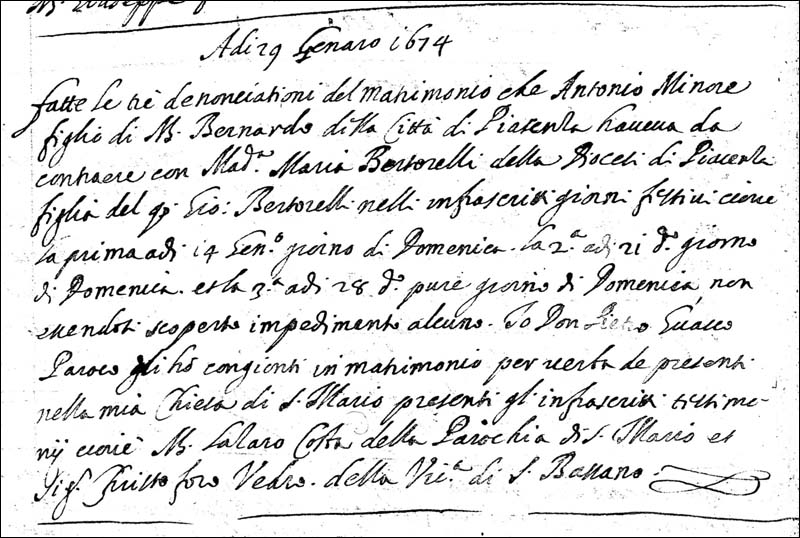 Adi 29 Genaro 1674
fatte le trè denonciationi del matrimonio che Antonio Minore
figlio di M. Bernardo della Città di Piacenza haveva da
contraere con Mad.ª Maria Bertorelli della Diocesi di Piacenza
figlia del q. Gio: Bertorelli nelli infrascritti giorni festivi cioue
la prima adi 14 Gen.º giorno di Domenica. la 2.ª adi 21 d.º giorno
di Domenica. et la 3.ª adi 28 d.º pure giorno di Domenica, non
essendosi scoperto impedimento alcuno. Io Don Pietro
Paroco gli hò congionti in matrimonio per verba de presenti
nella mia Chiesa di S. Mario presenti gl'infrascritti testimo-
nij ciouè M. Lazaro Costa della Parochia di S. Mario et
Sig. Christoforo Vedro. della Vic.ª di S. Bassano.